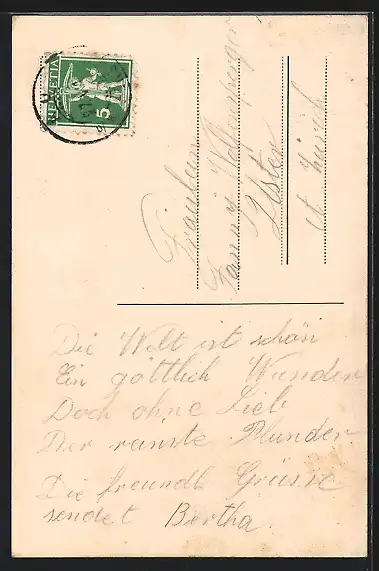 HELVETIA
5
Fräulein
Fanny Wolfensperger
Uster
Ct Zürich
Die Welt ist schön
Ein göttlich Wunder
Doch ohne Lieb
Der reinste Plunder.
Die freundl Grüsse
sendet Bertha.